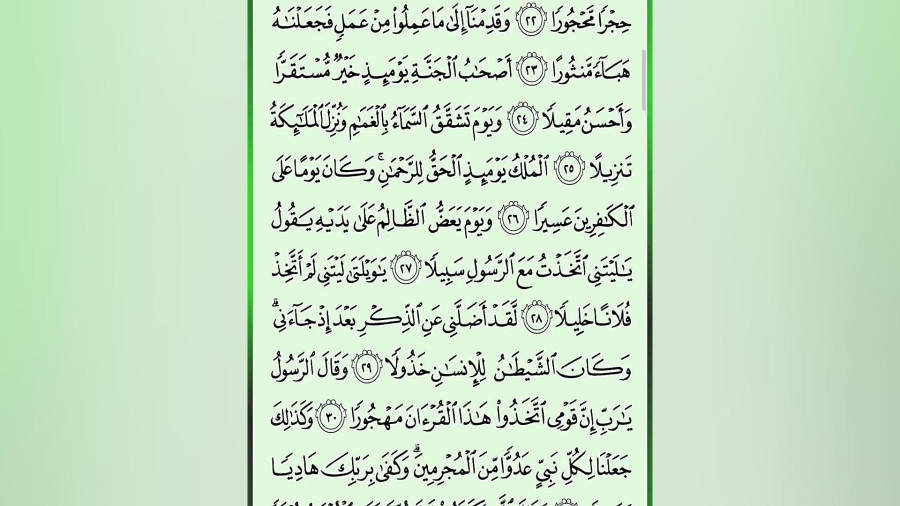 حِجْرًا مَّحْجُورًا ٢٢ وَقَدِمْنَآ إِلَىٰ مَا عَمِلُوا۟ مِنْ عَمَلٍ فَجَعَلْنَٰهُ
هَبَآءً مَّنثُورًا ٢٣ أَصْحَٰبُ ٱلْجَنَّةِ يَوْمَئِذٍ خَيْرٌ مُّسْتَقَرًّا
وَأَحْسَنُ مَقِيلًا ٢٤ وَيَوْمَ تَشَقَّقُ ٱلسَّمَآءُ بِٱلْغَمَٰمِ وَنُزِّلَ ٱلْمَلَٰٓئِكَةُ
تَنزِيلًا ٢٥ ٱلْمُلْكُ يَوْمَئِذٍ ٱلْحَقُّ لِلرَّحْمَٰنِ ۚ وَكَانَ يَوْمًا عَلَى
ٱلْكَٰفِرِينَ عَسِيرًا ٢٦ وَيَوْمَ يَعَضُّ ٱلظَّالِمُ عَلَىٰ يَدَيْهِ يَقُولُ
يَٰلَيْتَنِى ٱتَّخَذْتُ مَعَ ٱلرَّسُولِ سَبِيلًا ٢٧ يَٰوَيْلَتَىٰ لَيْتَنِى لَمْ أَتَّخِذْ
فُلَانًا خَلِيلًا ٢٨ لَّقَدْ أَضَلَّنِى عَنِ ٱلذِّكْرِ بَعْدَ إِذْ جَآءَنِى ۗ
وَكَانَ ٱلشَّيْطَٰنُ لِلْإِنسَٰنِ خَذُولًا ٢٩ وَقَالَ ٱلرَّسُولُ
يَٰرَبِّ إِنَّ قَوْمِى ٱتَّخَذُوا۟ هَٰذَا ٱلْقُرْءَانَ مَهْجُورًا ٣٠ وَكَذَٰلِكَ
جَعَلْنَا لِكُلِّ نَبِىٍّ عَدُوًّا مِّنَ ٱلْمُجْرِمِينَ ۗ وَكَفَىٰ بِرَبِّكَ هَادِيًا